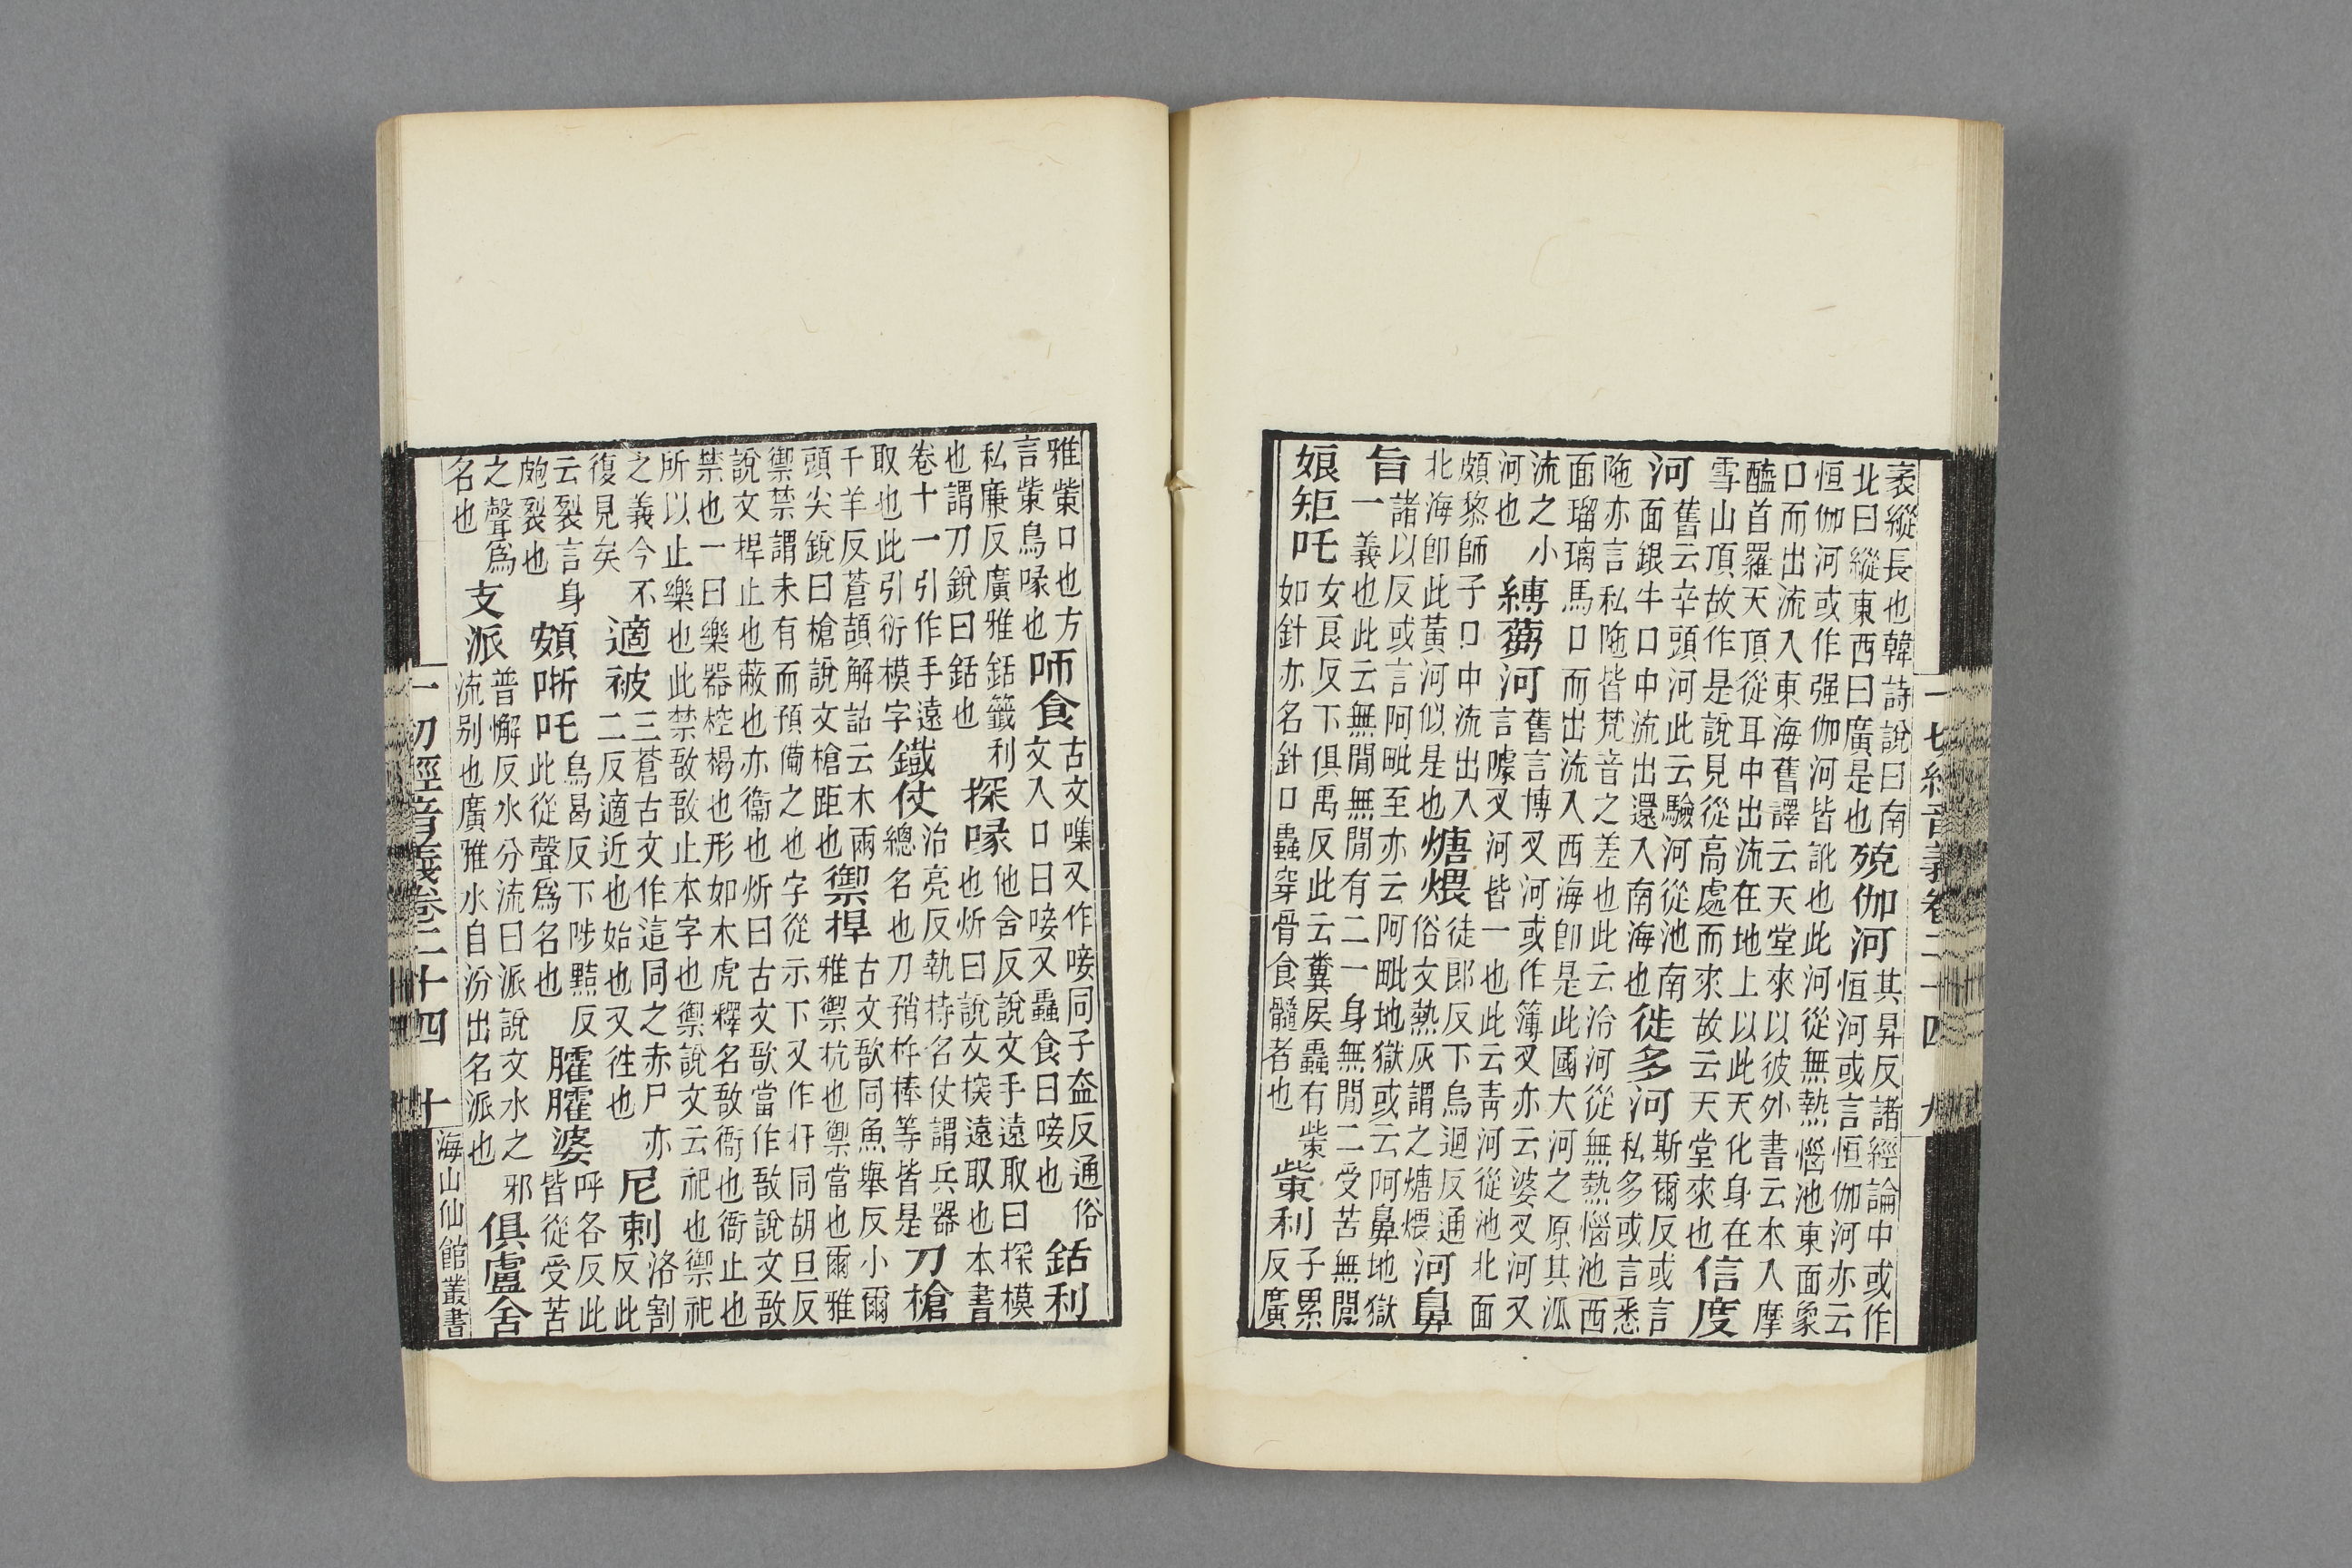 袤縱長也韓詩說曰南北曰縱東西曰廣是也殑伽河其昇反諸經論中或作恒河或言恒伽河亦云
恒伽河或作强伽河皆訛也此河從無熱惱池東面象口而出流入東海舊譯云天堂來以彼外書云本入摩
醯首羅天頂從耳中出流在地上以此天化身在雪山頂故作是說見從高處而來故云天堂來也信度
河舊云辛頭河此云驗河從池南面銀牛口中流出還入南海也徙多河斯爾反或言私多或言悉
陁亦言私陁皆梵音之差也此云冾河從無熱惱池西面瑠璃馬口而出流入西海卽是此國大河之原其派
流之小河也縛蒭河舊言博叉河或作簿叉亦云婆叉河又言㬦叉河皆一也此云靑河從池北面
頗黎師子口中流出入北海卽此黃河似是也煻煨徒郎反下烏迴反通俗文熱灰謂之煻煨河鼻
旨諸以反或言阿毗至亦云阿毗地獄或云阿鼻地獄一義也此云無閒無閒有二一身無閒二受苦無閒
娘矩吒女良反下俱禹反此云糞屎蟲有觜如針亦名針口蟲穿骨食髓者也觜利子累反廣
一切經音義卷二十四 九
雅觜口也方言觜鳥喙也㕹食古文噍又作唼同子盍反通俗文入口曰唼又蟲食曰唼也銛利
私廉反廣雅銛籤利也謂刀銳曰銛也探喙他含反說文手遠取曰探模也炘曰說文探遠取也本書
卷十一引作手遠取也此引衍模字鐵仗治亮反執持名仗謂兵器總名也刀矟杵棒等皆是刀槍
千羊反蒼頡解詁云木兩頭尖銳曰槍說文槍距也禦捍古文敔同魚舉反小爾雅禦抗也禦當也爾雅
禦禁謂未有而預備之也字從示下又作扞同胡旦反說文捍止也蔽也亦衞也炘曰古文敔當作敔說文敔
禁也一曰樂器椌楬也形如木虎釋名敔衙也衙止也所以止樂也此禁敔敔止本字也禦說文云祀也禦祀
之義今不復見矣適被三蒼古文作這同之赤尸亦二反適近也始也又徃也尼剌洛割反此
云裂言身皰裂也頞哳吒烏曷反下陟黠反此從聲爲名也臛臛婆呼各反此皆從受苦
之聲爲名也支派普懈反水分流曰派說文水之邪流别也廣雅水自汾出名派也俱盧舍
一切經音義卷二十四 十
海山仙館叢書